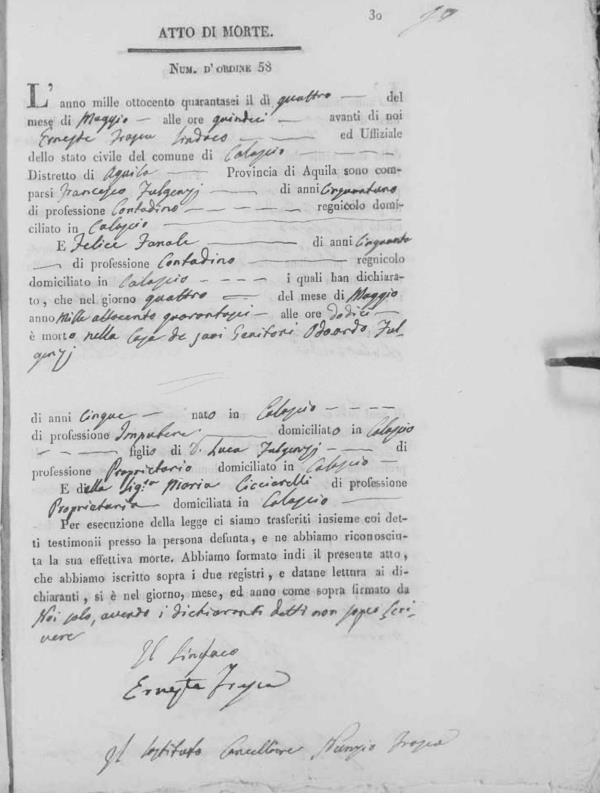 30
ATTO DI MORTE.
NUM. D'ORDINE 58
L'anno mille ottocento quarantasei il dì quattro — del
mese di Maggio — alle ore quindici — avanti di noi
Erneste Frasca Sindaco — ed Uffiziale
dello stato civile del comune di Calascio —
Distretto di Aquila — Provincia di Aquila sono com-
parsi Francesco Fulgenzj — di anni Cinquantuno
di professione Contadino — — — — regnicolo domi-
ciliato in Calascio —
E Felice Fanale — di anni Cinquanta
— di professione Contadino — regnicolo
domiciliato in Calascio — — — — i quali han dichiara-
to, che nel giorno quattro — del mese di Maggio
anno Mille ottocento quarantasei — alle ore dodici —
è morto nella Casa de suoi Genitori Odoardo Ful-
genzj
di anni Cinque — nato in Calascio — — — —
di professione Impubere — domiciliato in Calascio
— — — — figlio di D. Luca Fulgenzj — di
professione Proprietario domiciliato in Calascio —
E della Sig.ra Maria Cicciarelli di professione
Proprietaria domiciliata in Calascio —
Per esecuzione della legge ci siamo trasferiti insieme coi det-
ti testimonii presso la persona defunta, e ne abbiamo riconosciu-
ta la sua effettiva morte. Abbiamo formato indi il presente atto,
che abbiamo iscritto sopra i due registri, e datane lettura ai di-
chiaranti, si è nel giorno, mese, ed anno come sopra firmato da
Noi solo, avendo i dichiaranti detti non sapere scri-
vere
Il Sindaco
Erneste Frasca
Il Sostituto Cancelliere Nunzio Frasca